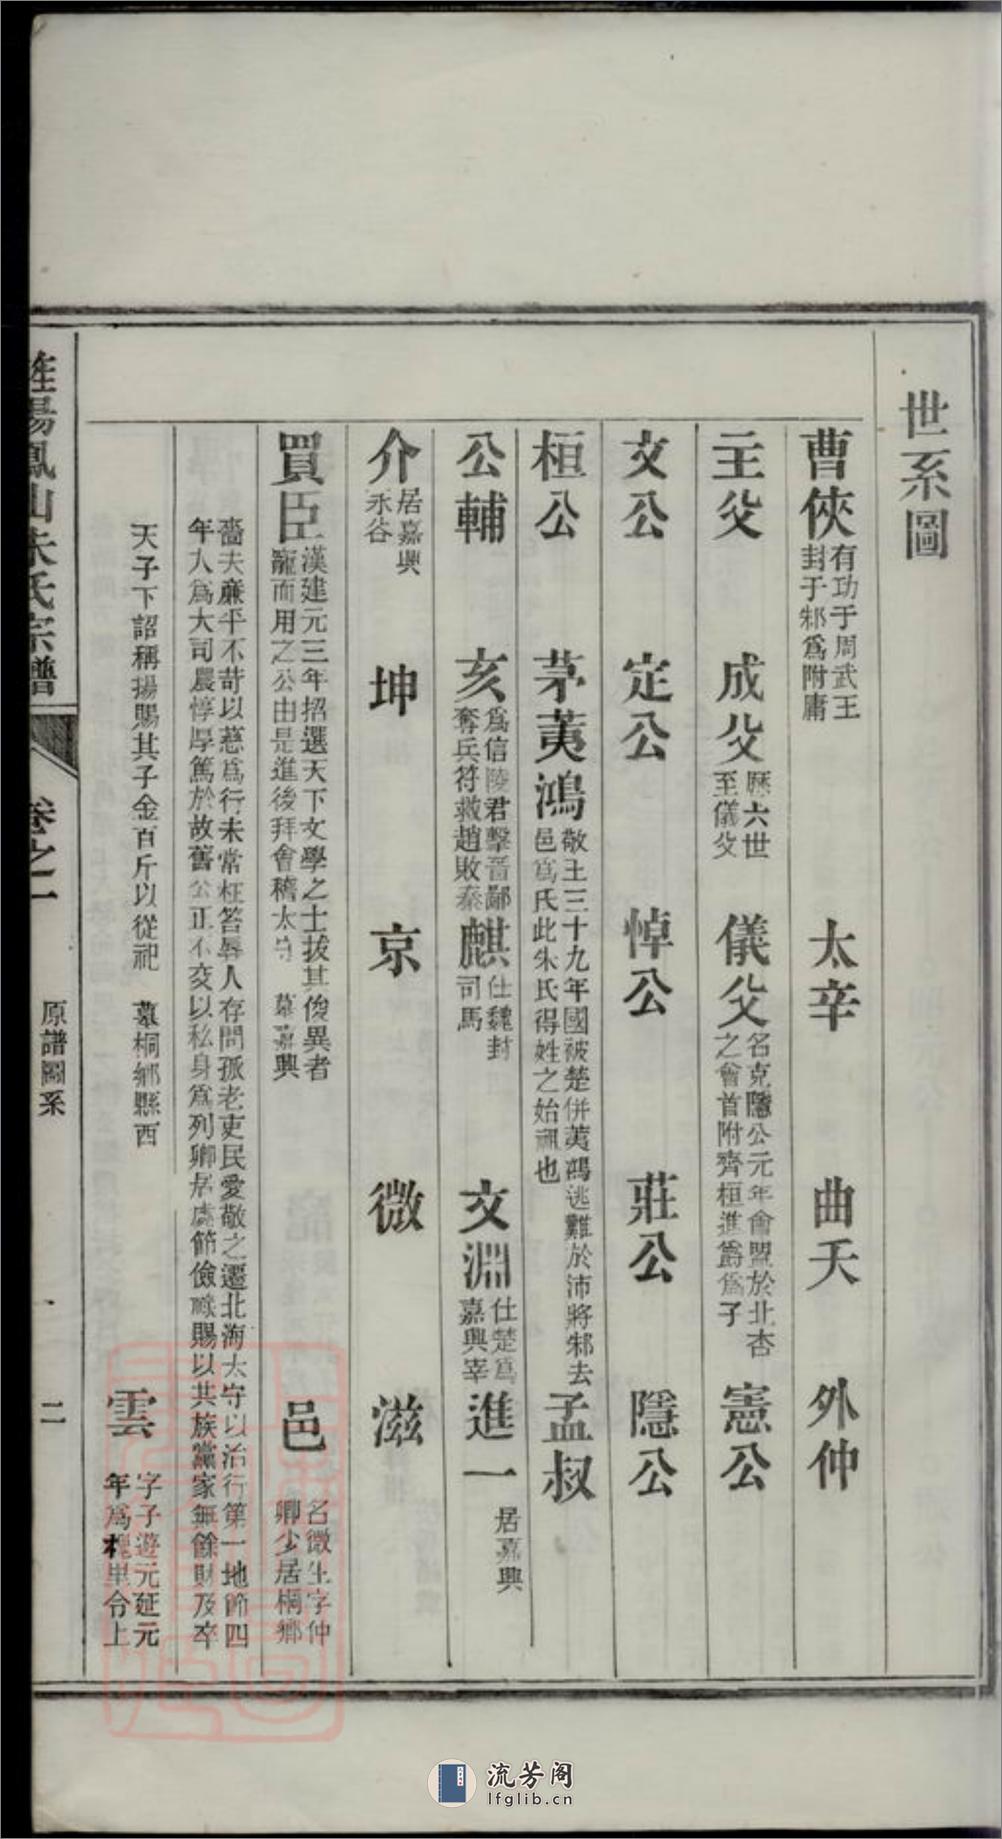 世系圖
曹俠 有功于周武王封于邾為附庸 太辛 曲夭 外仲
主父 成父 歷六世至儀父 儀父 名克隱公元年會盟於北杏之會首附齊桓進爵為子 憲公
文公 定公 悼公 莊公 隱公
桓公 茅荑鴻 敬王三十九年國被楚併荑鴻逃難於沛將邾去邑為氏此朱氏得姓之始祖也 孟叔
公輔 亥 為信陵君擊晋鄙奪兵符救趙敗秦 麒 仕魏封司馬 文淵 仕楚為嘉興宰 進一 居嘉興
介 居嘉興永谷 坤 京 微 滋
買臣 漢建元三年招選天下文學之士拔其俊異者寵而用之公由是進後拜會稽太守 墓嘉興 邑 名微生字仲卿少居桐鄉
嗇夫廉平不苛以慈為行未常枉笞辱人存問孤老吏民愛敬之遷北海太守以治行第一地節四
年入為大司農惇厚篤於故舊公正不交以私身為列卿居處節儉祿賜以共族黨家無餘財及卒
天子下詔稱揚賜其子金百斤以從祀 墓桐鄉縣西 雲 字子遊元延元年為槐里令上
旌陽鳳山朱氏宗譜 卷之一 原譜圖系 一 二
流芳阁
lfglib.cn